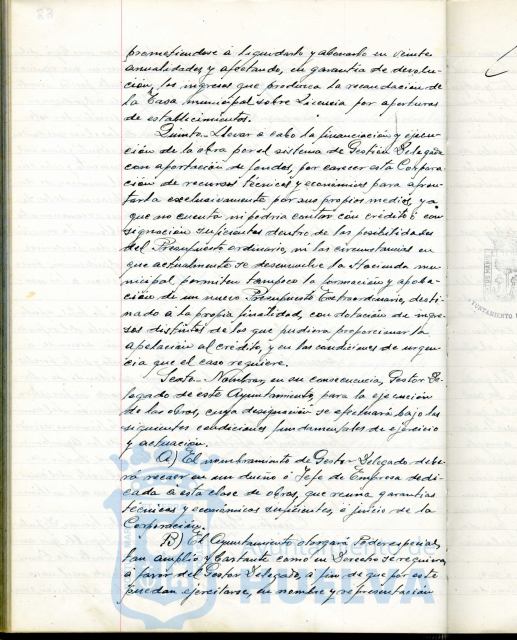 prometiendose á liquidarlo y abonarlo en veinte
anualidades y afectando, en garantía de devolu-
ción, los ingresos que produzca la recaudación de
la Tasa municipal sobre Licencia por aperturas
de establecimientos.
Quinto.- Llevar a cabo la financiación y ejecu-
ción de la obra por el sistema de Gestión Delegada
con aportación de fondos, por carecer esta Corpora-
ción de recursos técnicos y económicos para afron-
tarla exclusivamente por sus propios medios, ya
que no cuenta ni podria contar con crédito ó con-
signación suficientes dentro de las posibilidades
del Presupuesto ordinario, ni las circunstancias en
que actualmente se desenvuelve la Hacienda mu-
nicipal permiten tampoco la formación y aproba-
ción de un nuevo Presupuesto Extraordinario, desti-
nado á la propia finalidad, con dotación de ingre-
sos distintos de los que pudiera proporcionar la
apelación al crédito, y en las condiciones de urgen-
cia que el caso requiere.
Sexto.- Nombrar, en su consecuencia, Gestor De-
legado de este Ayuntamiento, para la ejecución
de las obras, cuya designación se efectuará bajo las
siguientes condiciones fundamentales de ejercicio
y actuación.
A) El nombramiento de Gestor Delegado debe-
rá recaer en un dueño ó Jefe de Empresa dedi-
cada á esta clase de obras, que reuna garantías
técnicas y económicas suficientes, á juicio de la
Corporación.
B) El Ayuntamiento otorgará Poder especial,
tan amplio y bastante como en Derecho se requiera,
á favor del Gestor Delegado, á fin de que por este
puedan ejercitarse, en nombre y representación
Ayuntamiento de
HUELVA